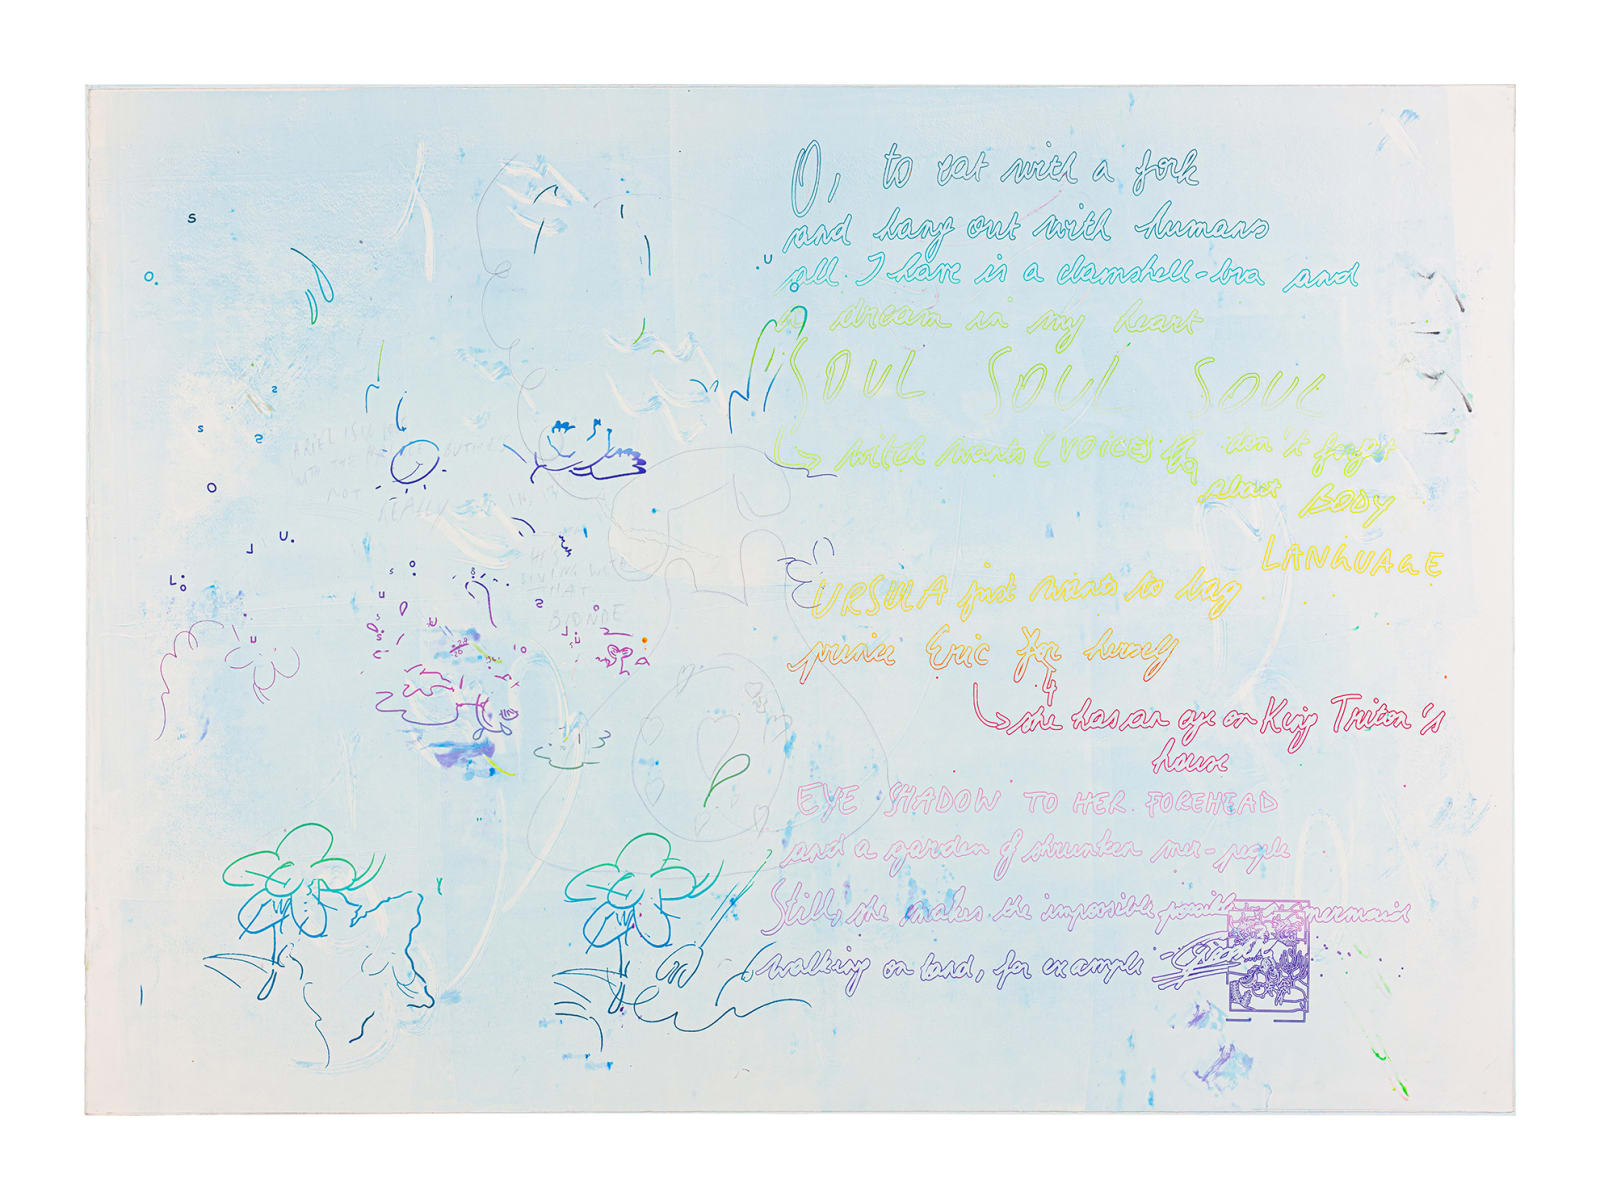 O, to eat with a fork
and hang out with humans
all. I have is a clamshell-bra and
a dream in my heart
SOUL SOUL SOUL
witch wants (VOICES) don't forget
about BODY
LANGUAGE
URSULA just wants to bag
prince Eric for herself
she has an eye on King Triton's
house
EYE SHADOW TO HER FOREHEAD
and a garden of shrunken mer-people
Still, she makes the impossible possible mermaid
walking on land, for example
ARIEL IS
WITH THE
NOT REALLY
WITH
THAT
BLONDE